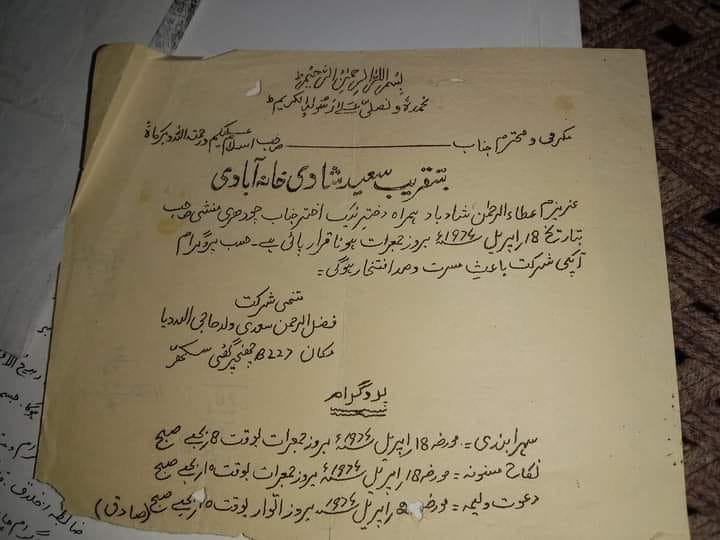 بسم اللہ الرحمن الرحیم ط
نحمدہ و نصلی علیٰ رسولہ الکریم ط
مکرمی و محترم جناب ــــــــــــــــــــــــ صاحب اسلام علیکم ورحمتہ اللہ وبرکاتہ
بتقریب سعید شادی خانہ آبادی
عزیزم عطاء الرحمٰن شاد باد ہمراہ دختر نیک اختر جناب چودھری منشی صاحب
بتاریخ 18 اپریل 1974ء بروز جمعرات ہونا قرار پائی ہے۔ حسب پروگرام
آپکی شرکت باعث مسرت و صد افتخار ہوگی =
متمنی شرکت
فضل الرحمن سعدی ولد حاجی اللہ دیا
مکان B227 سکھر
پروگرام
سہرا بندی = مورخہ 18 اپریل 1974ء بروز جمعرات بوقت 8 بجے صبح
نکاح مسنونہ = مورخہ 18 اپریل 1974ء بروز جمعرات بوقت 10 بجے صبح
دعوت ولیمہ = مورخہ اپریل 1974ء بروز اتوار بوقت 10 بجے صبح (صادق)